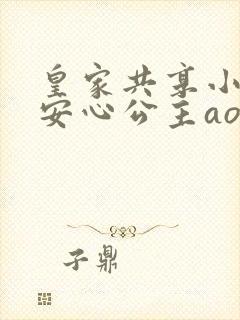 皇家共享小
安心公主ao
子鼎